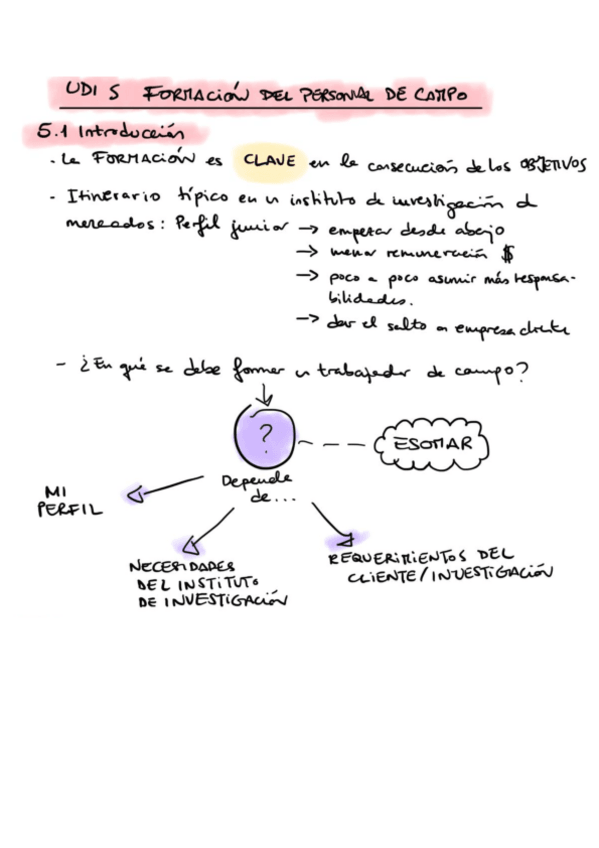 UDI 5 FORMACIÓN DEL PERSONAL DE CAMPO
5.1 Introducción
- La FORMACIÓN es CLAVE en la consecución de los OBJETIVOS
- Itinerario típico en un instituto de investigación de
mercados: Perfil junior → empezar desde abajo
→ menor remuneración $
→ poco a poco asumir más responsa-
bilidades.
→ dar el salto a empresa cliente
- ¿En qué se debe formar un trabajador de campo?
?
ESOMAR
Depende
de...
MI
PERFIL
NECESIDADES
DEL INSTITUTO
DE INVESTIGACIÓN
REQUERIMIENTOS DEL
CLIENTE/INVESTIGACIÓN